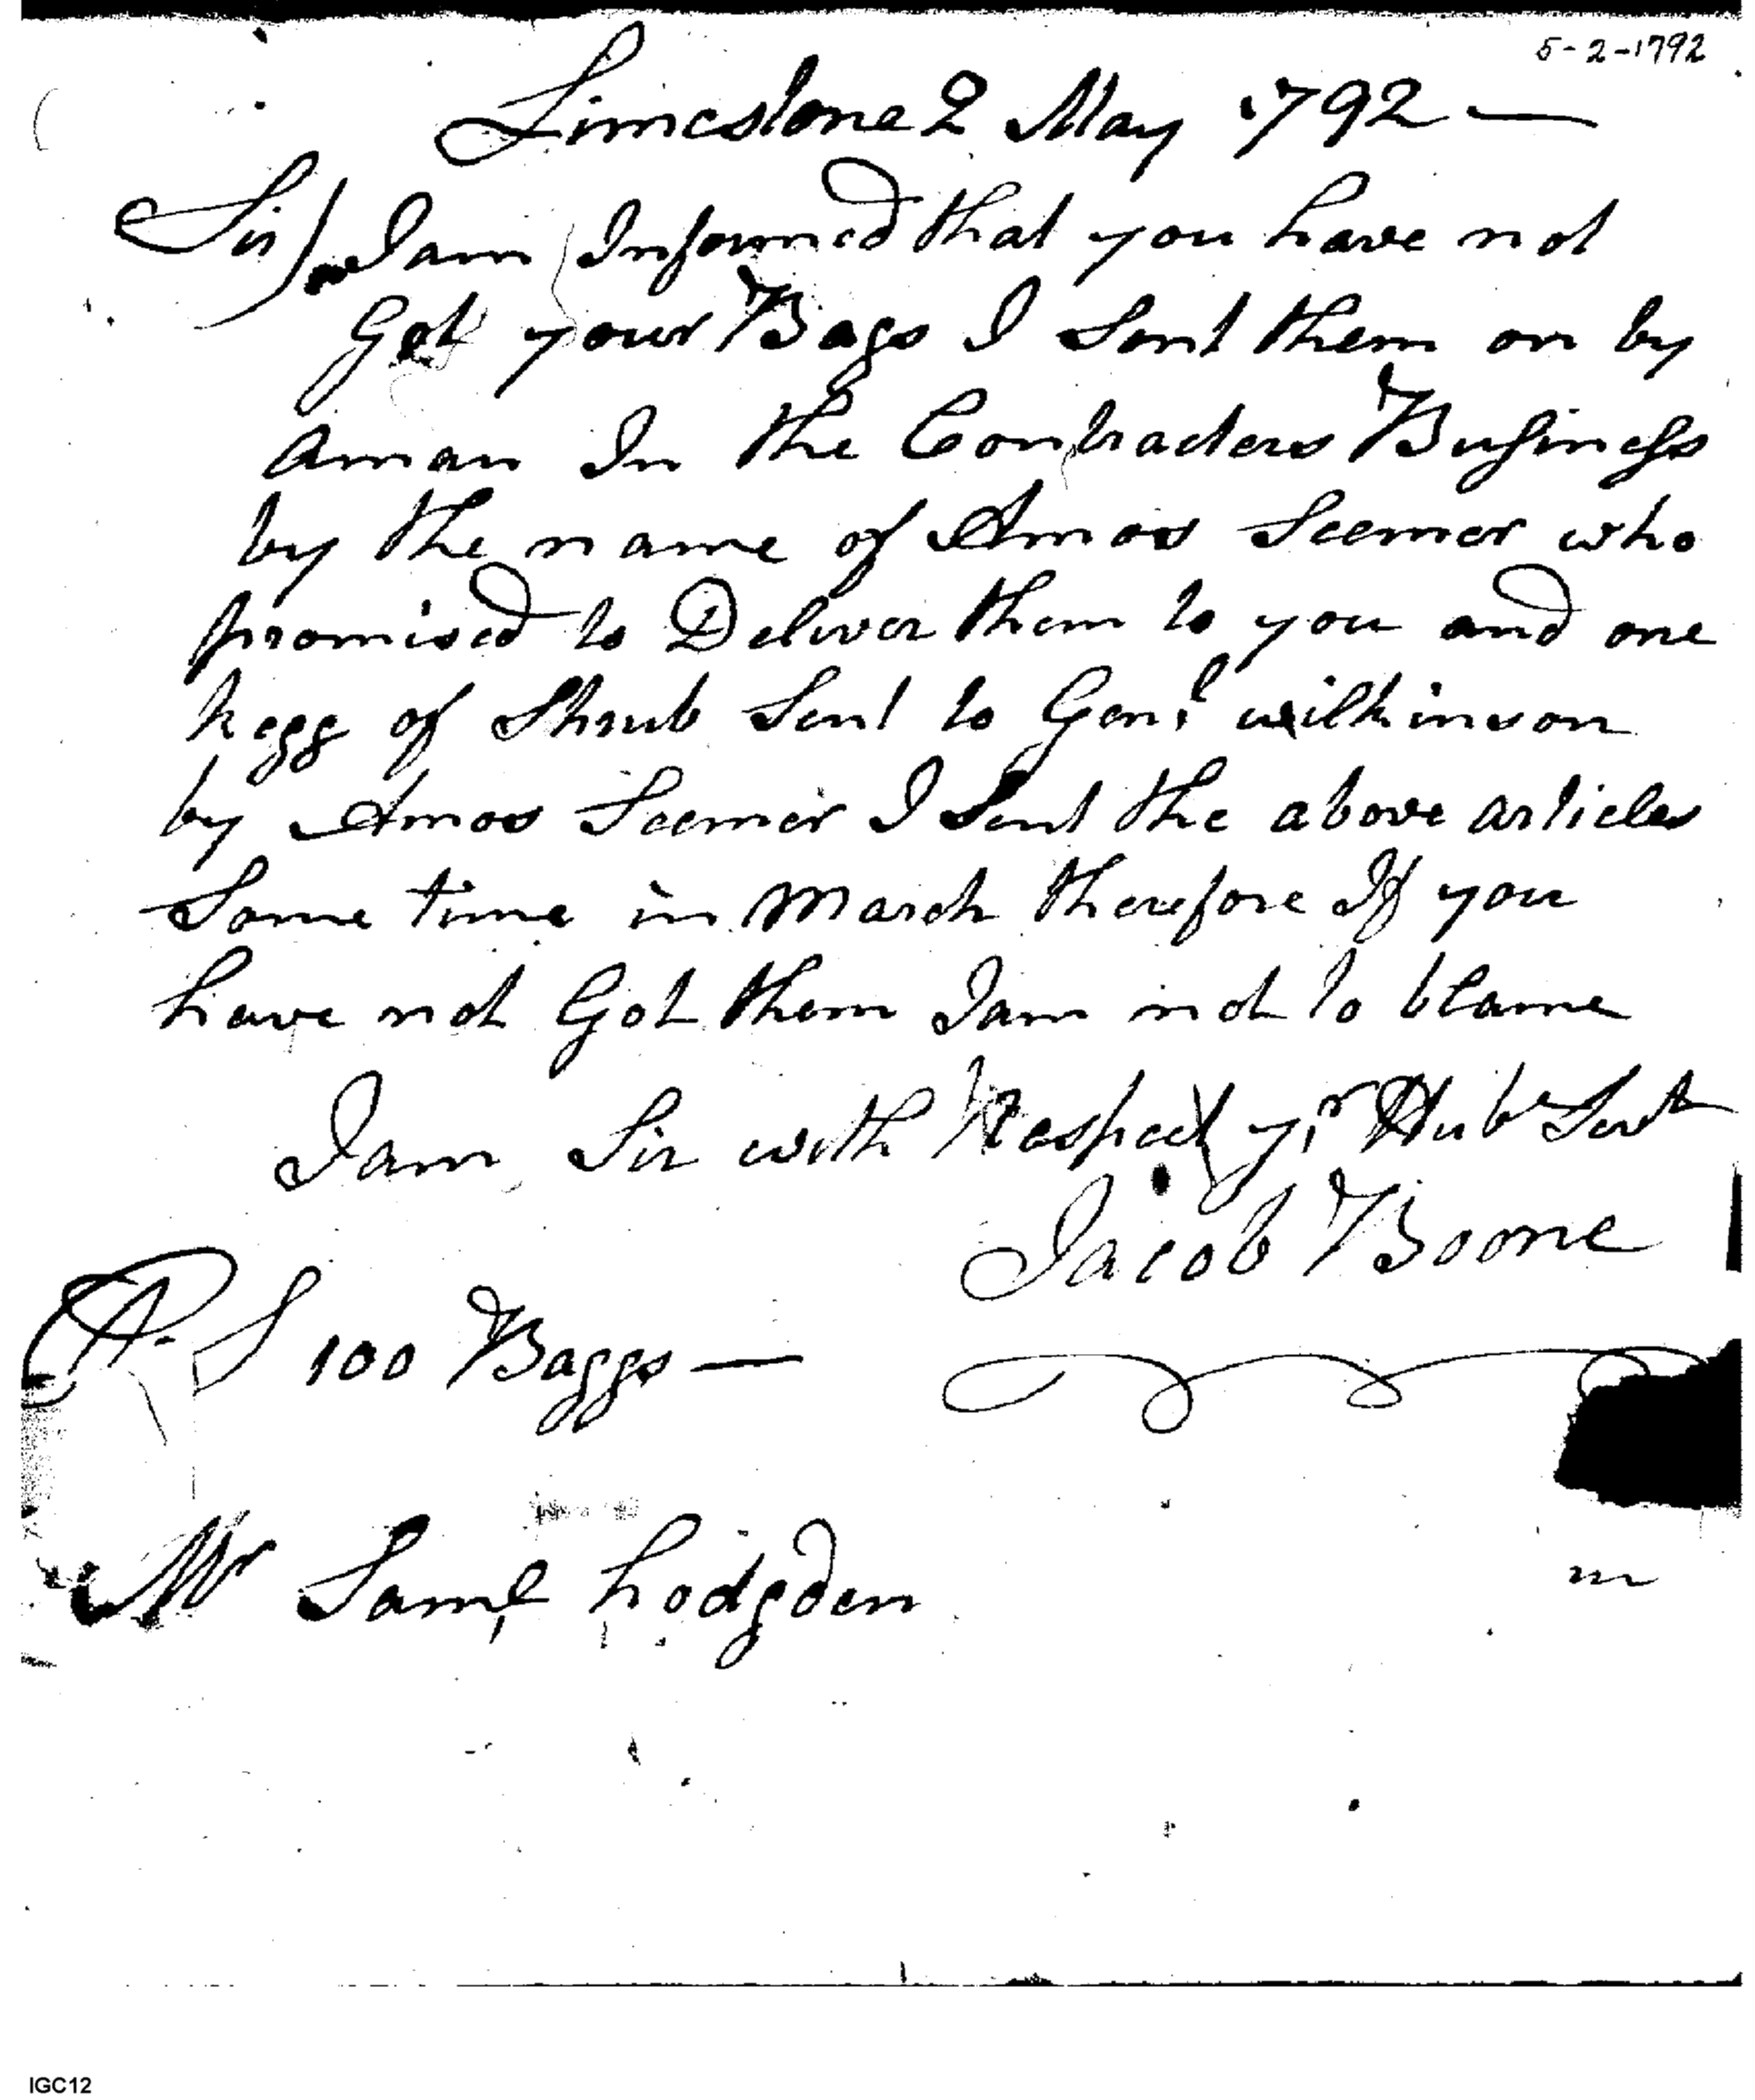 5-2-1792
Limestone 2 May 1792 —
Sir) I am Informed that you have not
Got your Bags I Sent them on by
Aman In the Contracters Business
by the name of Amos Seemer who
promised to Deliver them to you and one
kegg of Shrub Sent to Genl wilkinson
by Amos Seemer I Sent the above articles
Some time in March therefore If you
have not Got them I am not to blame
I am Sir with Respect yr Hube Sert
Jacob Boone
P. S 100 Baggs —
Mr Saml hodgden
IGC12